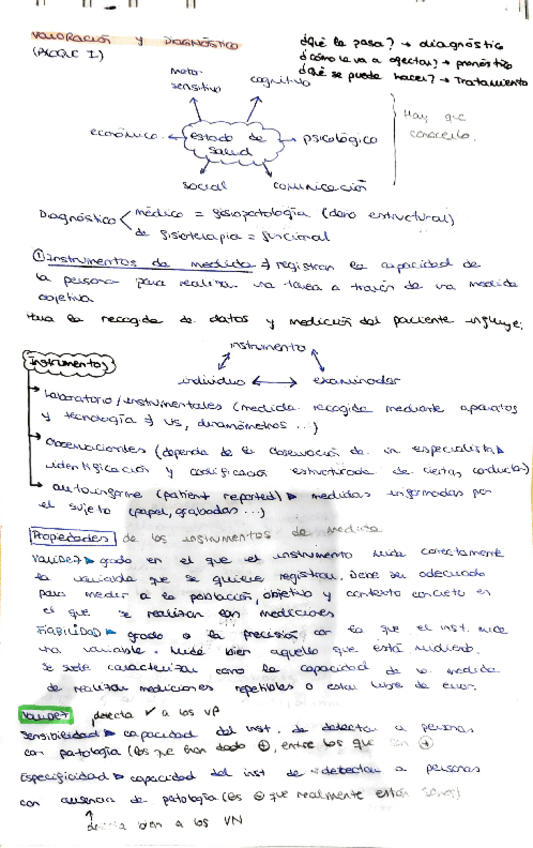 VALORACIÓN y DIAGNÓSTICO
(BLOQUE I)
¿Qué le pasa? → diagnóstico
¿cómo le va a afectar? → pronóstico
¿Qué se puede hacer? → Tratamiento
moto-
sensitivo
cognitivo
económico
estado de
salud
psicológico
social
comunicación
Hay que
conocerlo.
Diagnóstico
médico = fisiopatología (daño estructural)
de fisioterapia = funcional
① Instrumentos de medida → registran la capacidad de
la persona para realizar una tarea a través de una medida
objetiva
Para la recogida de datos y medición del paciente influye:
instrumento
individuo ↔ examinador
Instrumentos
→ Laboratorio/instrumentales (medida recogida mediante aparatos
y tecnología → US, dinamómetros ...)
→ Observacionales (depende de la observación de un especialista ▸
identificación y codificación estructurada de ciertas conductas)
→ autoinforme (patient reported) ▸ medidas informadas por
el sujeto (papel, grabadas ...)
Propiedades de los instrumentos de medida
VALIDEZ ▸ grado en el que el instrumento mide correctamente
la variable que se quiere registrar. Debe ser adecuado
para medir a la población, objetivo y contexto concreto en
el que se realizan las mediciones
FIABILIDAD ▸ grado o la precisión con la que el inst. mide
una variable. Mide bien aquello que está midiendo.
Se suele caracterizar como la capacidad de la medida
de realizar mediciones repetibles o estar libre de error.
VALIDEZ detecta ✓ a los VP
Sensibilidad ▸ capacidad del inst. de detectar a personas
con patología (los que han dado ⊕, entre los que son ⊕
Especificidad ▸ capacidad del inst de detectar a personas
con ausencia de patología (los ⊖ que realmente están sanos)
↑
detecta bien a los VN